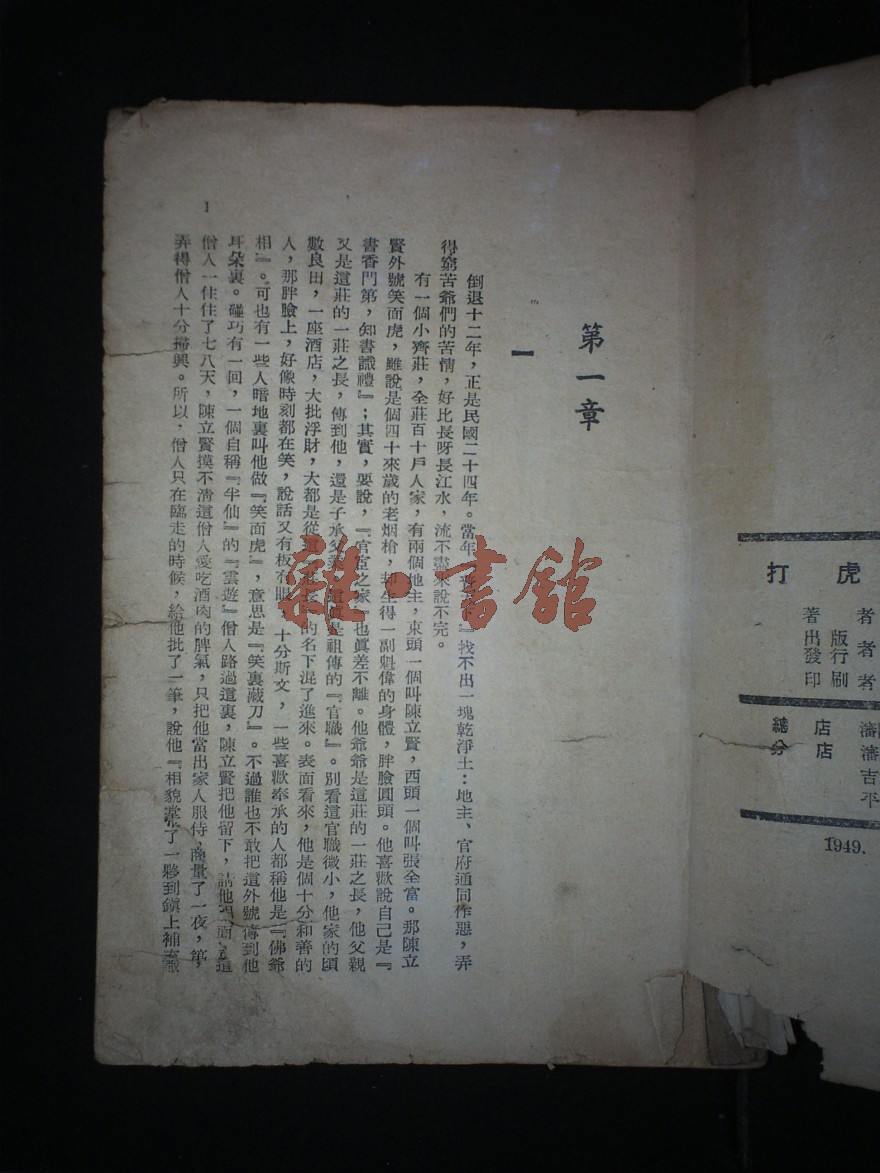 打虎
著者
出版者
發行者
印刷者
總店 瀋
分店 瀋
吉
平
1949.
第一章
一
倒退十二年，正是民國二十四年。當年，找不出一塊乾淨土：地主、官府通同作惡，弄
得窮苦爺們的苦情，好比長呀長江水，流不盡來說不完。
有一個小齊莊，全莊百十戶人家，有兩個地主，東頭一個叫陳立賢，西頭一個叫張全富。那陳立
賢外號笑面虎，雖說是個四十來歲的老烟槍，却生得一副魁偉的身體，胖臉圓頭。他喜歡說自己是『
書香門第，知書識禮』；其實，要說，『官宦之家』也眞差不離。他爺爺是這莊的一莊之長，他父親
又是這莊的一莊之長，傳到他，還是子承父業，這眞是祖傳的『官職』。別看這官職微小，他家的頃
數良田，一座酒店，大批浮財，大都是從這的名下混了進來。表面看來，他是個十分和善的
人，那胖臉上，好像時刻都在笑，說話又有板有眼，十分斯文，一些喜歡奉承的人都稱他是『佛爺
相』。可也有一些人暗地裏叫他做『笑面虎』，意思是『笑裏藏刀』。不過誰也不敢把這外號傳到他
耳朵裏。碰巧有一回，一個自稱『半仙』的『雲遊』僧人路過這裏，陳立賢把他留下，請他相面，這
僧人一住住了七八天，陳立賢摸不清這僧人愛吃酒肉的脾氣，只把他當出家人服侍，商量了一夜，第，
弄得僧人十分掃興。所以，僧人只在臨走的時候，給他批了一筆，說他『相貌堂了一夥到鎭上補充
1
雜·書館